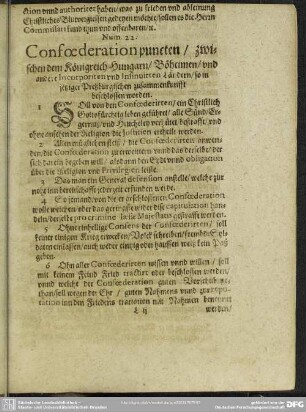 ction vnnd authoritet haben/ was zu frieden vnd ablehnung
Christliches Blutvergiessen gedeyen möchte/ sollen es die Herrn
Commissarii kund thun vnd offenbaren/ ꝛc.
Num. 22.
Confœderation puncten/ zwi-
schen dem Königreich Hungarn/ Böheimen/ vnd
andere Incorporirten vnd Imunirten Ländern/ so in
jetziger Preßburgischen zusammenkunfft
beschlossen worden.
1 SOll von den Confœderirten/ ein Christlich
Gottsfürchtig leben geführet/ alle Sünd/ Er-
gernuß/ vnd Hurerey weg ernst bestrafft/ vnd
ohne ansehen der Religion die Justitien ertheilt werden.
2 Allen möglichen fleiß/ die Confœderirten anwen-
den/ die Confœderation zu vermehren vnd da derselben/ der
sich darein begeben will/ alsdann den Eydt vnnd obligation
über die Religion vnd Privilegien leiste.
3 Das man ein General defension anstelle/ welche zur
noth inn bereitschafft jederzeit erfunden werde.
4 So jemand/ von dieser beschlossenen Confœderation
wolle weichen/ oder das geringste wider diese capitulation han-
deln/ der solle pro crimine læsæ Maiestatis gestrafft werden.
5 Ohn einhellige Consens der Confœderirten/ soll
keiner einigen Krieg erwecken/ Volck schreiben/ frembde Sol-
daten einlassen/ auch weder einzig oder hauffen weiß kein Paß
geben.
6 Ohn aller Confœderirten wissen vnnd willen/ soll
mit keinem Feind Fried tractirt oder beschlossen werden/
vnd welche der Confœderation guten Vorschub ge-
than/ soll wegen der Ehr/ guten Nahmens vnnd zur repu-
tation inn den Friedens tractation mit Nahmen benennet
L ij werden/